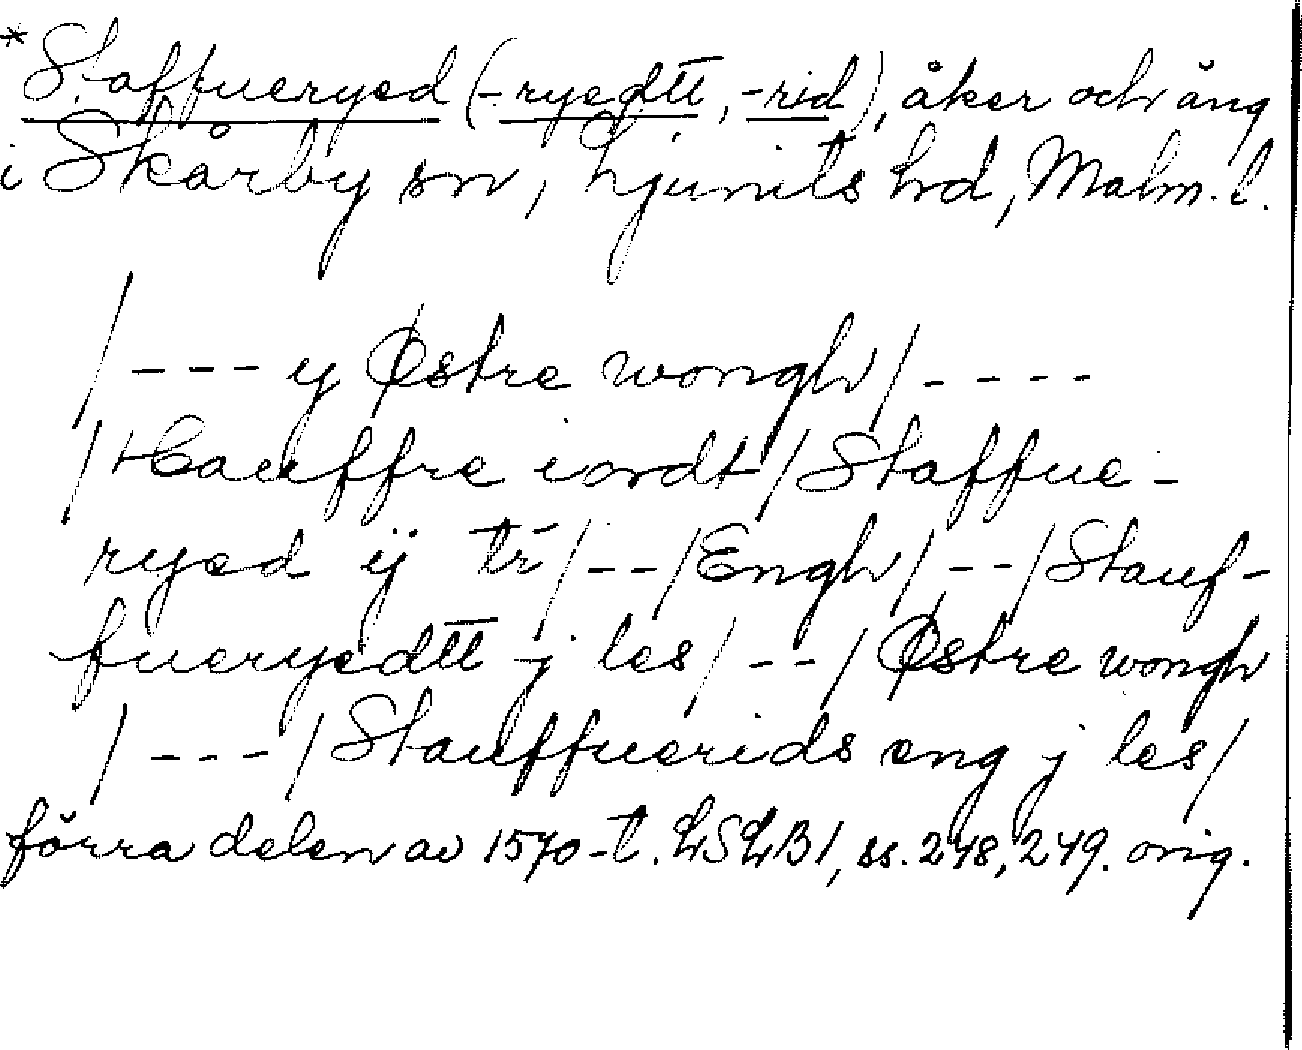 *Staffueryed (-ryedtt, -rid), åker och äng
i Skårby sn, Ljunits hd, Malm. l.
/--- y Østre wongh/----
/Hauffre iordt/Staffue-
ryed ij tr̄/--/Engh/--/Stauf-
fueryedtt j les/--/Østre wongh
/---/Stauffuerids eng j les/
förra delen av 1570-t. LSLB1, ss. 248, 249. orig.